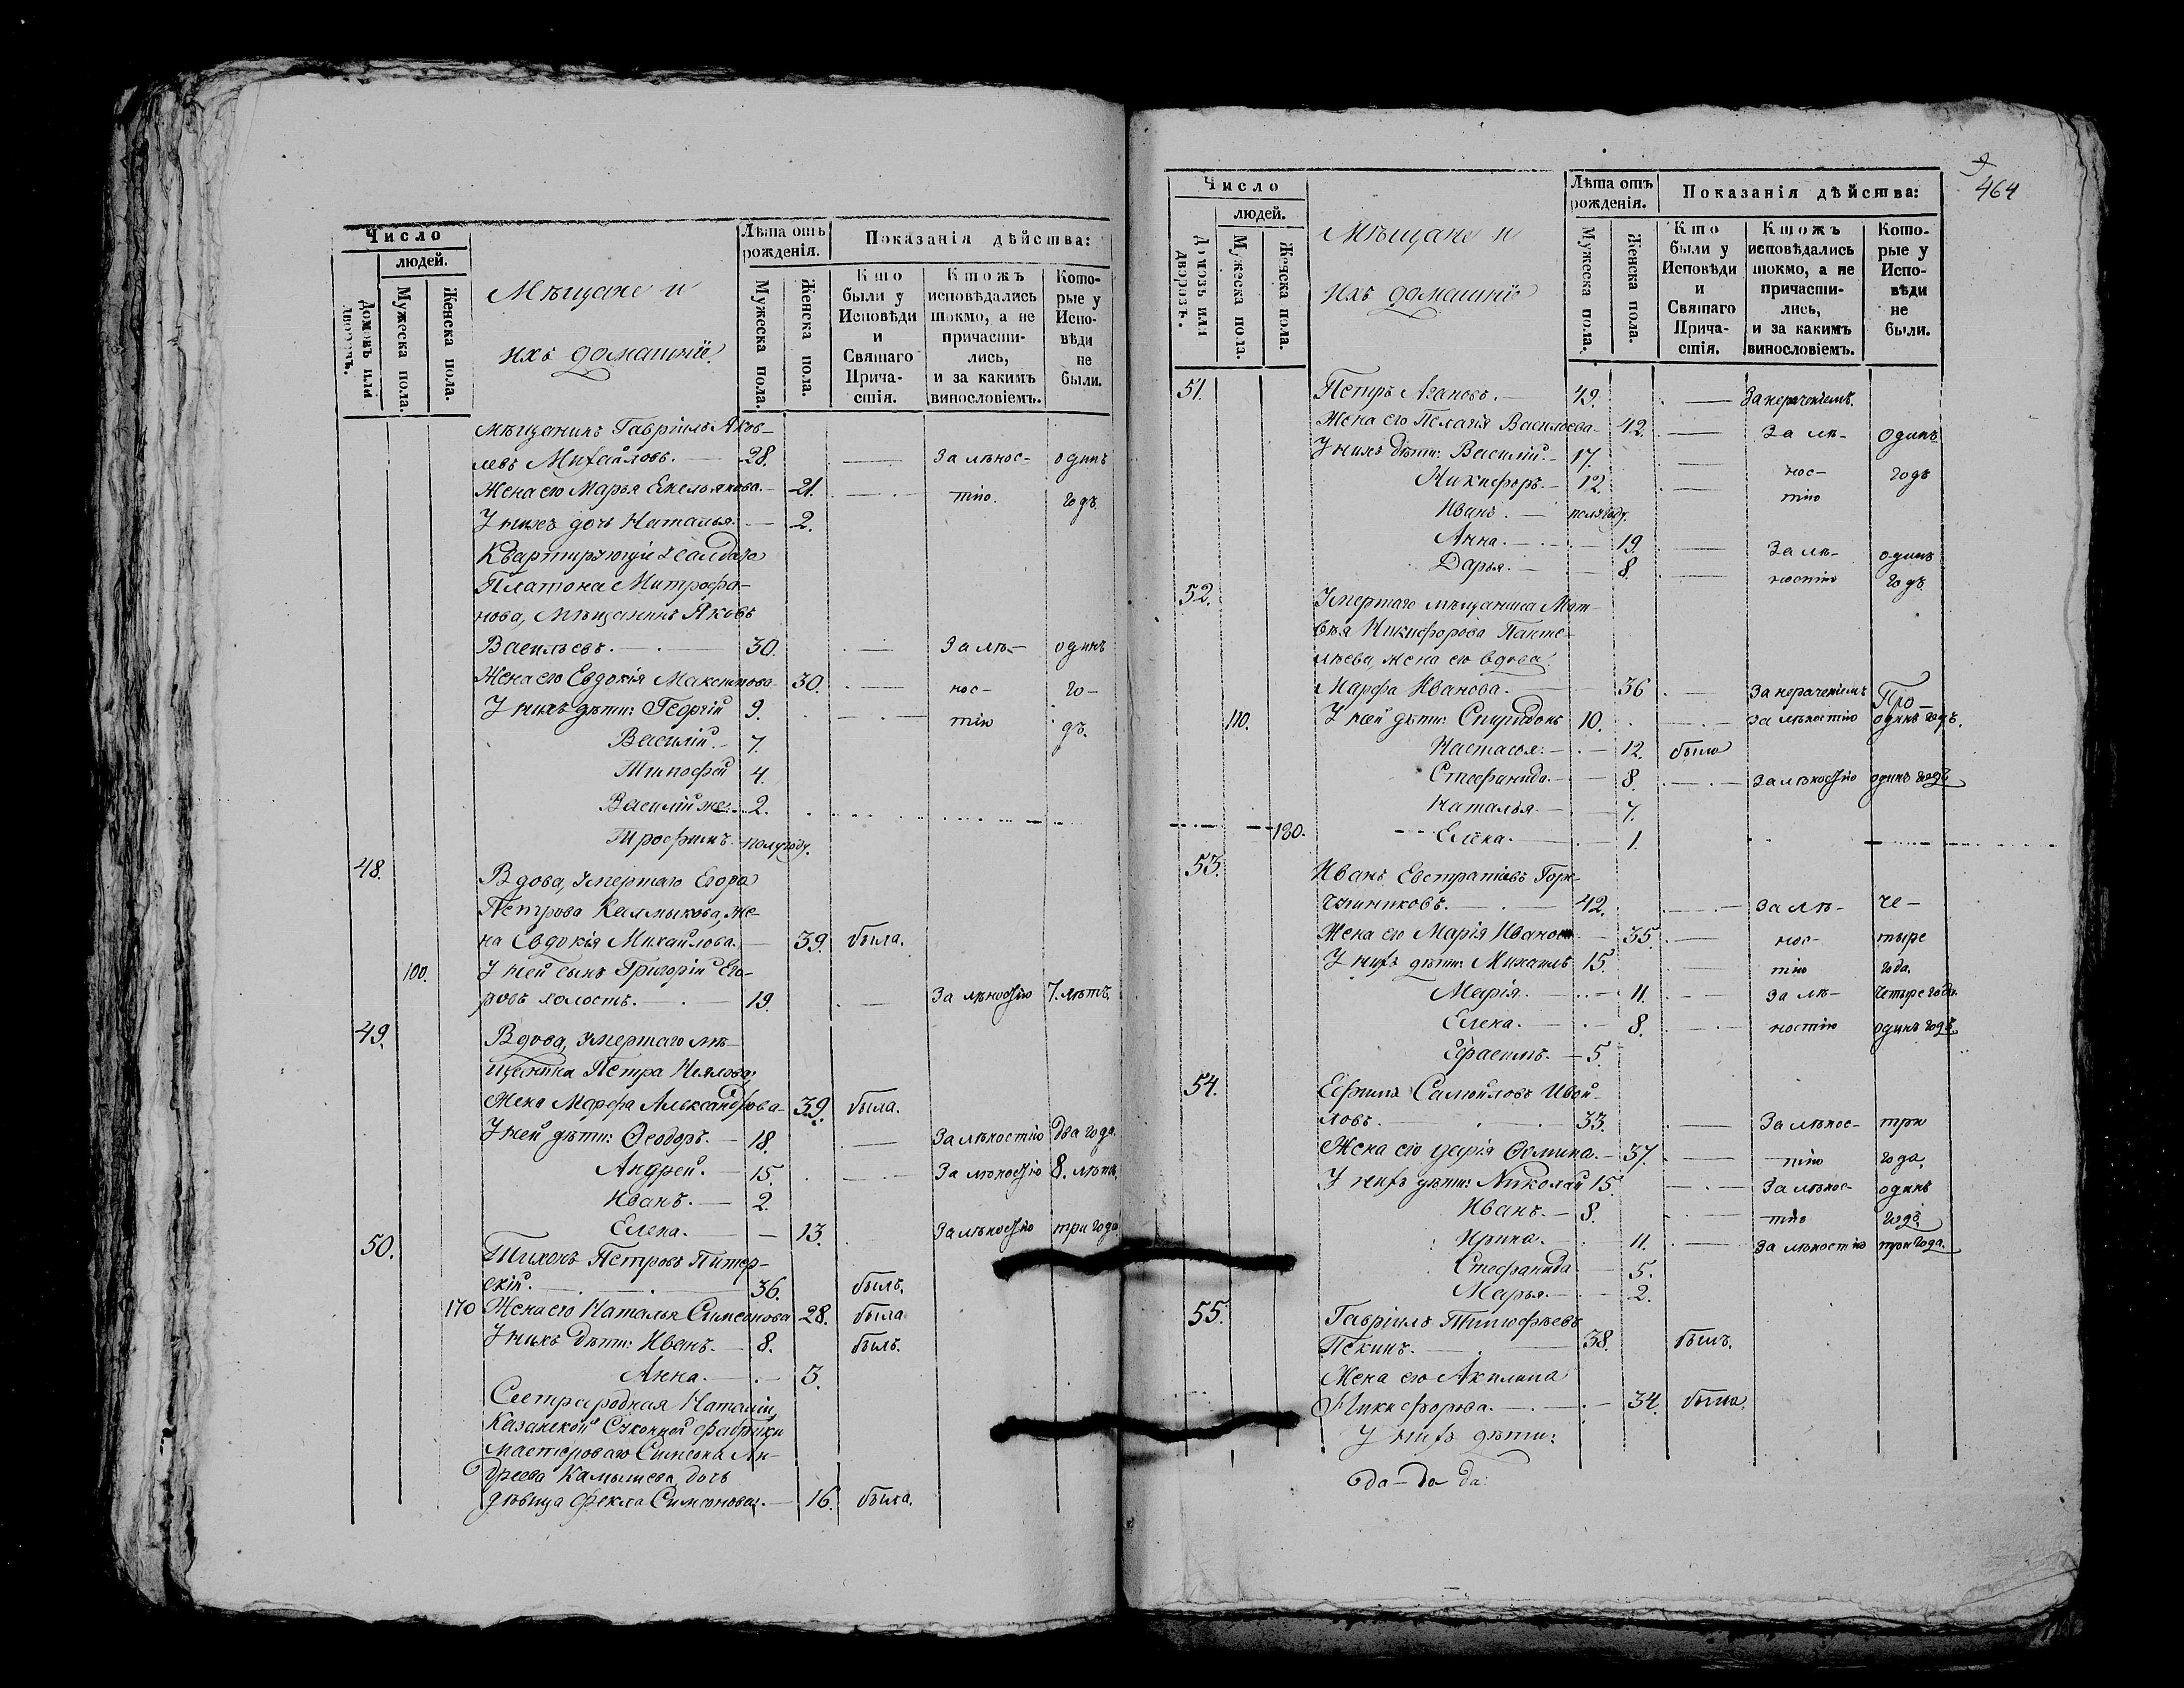 Число
людей.
Домовъ или дворовъ.
Мужеска пола.
Женска пола.
Мѣщане и
ихъ домашніе.
Лѣта отъ рожденія.
Мужеска пола.
Женска пола.
Показанія дѣйства:
Кто были у Исповѣди и Святаго Прича- стія.
Ктожъ исповѣдались токмо, а не причасти- лись, и за какимъ винословіемъ.
Кото- рые у Испо- вѣди не были.
Мѣщанинъ Гавріилъ Яков-
левъ Михайловъ. — 28. — За лѣнос- одинъ
Жена его Марья Емельянова. — 21. — тію. годъ.
У нихъ дочь Наталья. — 2.
Квартирующіе у солдата
Платона Митрофа-
нова, Мѣщанинъ Яковъ
Васильевъ. — 30. — За лѣ- одинъ
Жена его Евдокія Максимова 30. — нос- го-
У нихъ дѣти: Георгій 9. — тію дъ.
Василій. — 7.
Тимофей 4.
Василій же: — 2.
Трофимъ. — полугоду.
48. Вдова, умершаго Егора
Петрова Калмыкова, же-
на Евдокія Михайлова. — 39. была.
100. У ней сынъ Григорій Его-
ровъ холостъ. — 19. — За лѣностію 7. лѣтъ.
49. Вдова, умершаго мѣ-
щанина Петра
Жена Марфа Александрова — 39. была.
У ней дѣти: Ѳеодоръ. — 18. — За лѣностію два года.
Андрей. — 15. — За лѣностію 8. лѣтъ.
Иванъ. — 2.
Елена. — 13. За лѣностію три года
50. Тихонъ Петровъ Питер-
скій. — 36. былъ.
170 Жена его Наталья Симеонова 28. была
У нихъ дѣти: Иванъ. — 8. былъ.
Анна. — 3.
Сестра родная Наталіи,
Казанской Суконной фабрики
мастероваго Симеона Ан-
дреева Камышева, дочь
дѣвица Фекла Симеонова. — 16. была.
464
Число
людей.
Домовъ или дворовъ.
Мужеска пола.
Женска пола.
Мѣщане и
ихъ домашніе
Лѣта отъ рожденія.
Мужеска пола.
Женска пола.
Показанія дѣйства:
Кто были у Исповѣди и Святаго Прича- стія.
Ктожъ исповѣдались токмо, а не причасти- лись, и за какимъ винословіемъ.
Кото- рые у Испо- вѣди не были.
51. Петръ Агаповъ. — 49. — За нераченіемъ.
Жена его Пелагія Васильева — 42. — За лѣ- одинъ
У нихъ дѣти: Василій. — 17. — нос- годъ
Никифоръ. — 12. — тію
Иванъ. — полугоду.
Анна. — 19. — За лѣ- одинъ
Дарья. — 8. — ностію годъ
52. Умершаго мѣщанина Мат-
вѣя Никифорова Панте-
лѣева, жена его вдова
Марфа Иванова. — 36 — За нераченіемъ
110. У ней дѣти: Спиридонъ 10. — за лѣностію одинъ годъ.
Настасья: — 12. была
Стефанида. — 8. — за лѣностію одинъ годъ
Наталья — 7.
180. Елена. — 1.
53. Иванъ Евстратіевъ Горя-
чкиниковъ. — 42. — за лѣ- че-
Жена его Марія Иванова — 35. — нос- тыре
У нихъ дѣти: Михаилъ 15. — тію года.
Марія. — 11. — за лѣ- четыре года.
Елена. — 8. — ностію одинъ годъ.
Герасимъ. — 5.
54. Ефимъ Самойловъ
ловъ. 33. — За лѣнос- три
Жена его Дарія Ѳомина. — 37. — тію года,
У нихъ дѣти: Николай 15. — За лѣнос- одинъ
Иванъ. — 8. — тію годъ.
Ирина. — 11. — За лѣностію три года.
Стефанида — 5.
Марья. — 2.
55. Гавріилъ Тимофѣевъ
Пекинъ. — 38. былъ.
Жена его Акилина
Никифорова. — 34. была.
У нихъ дѣти: